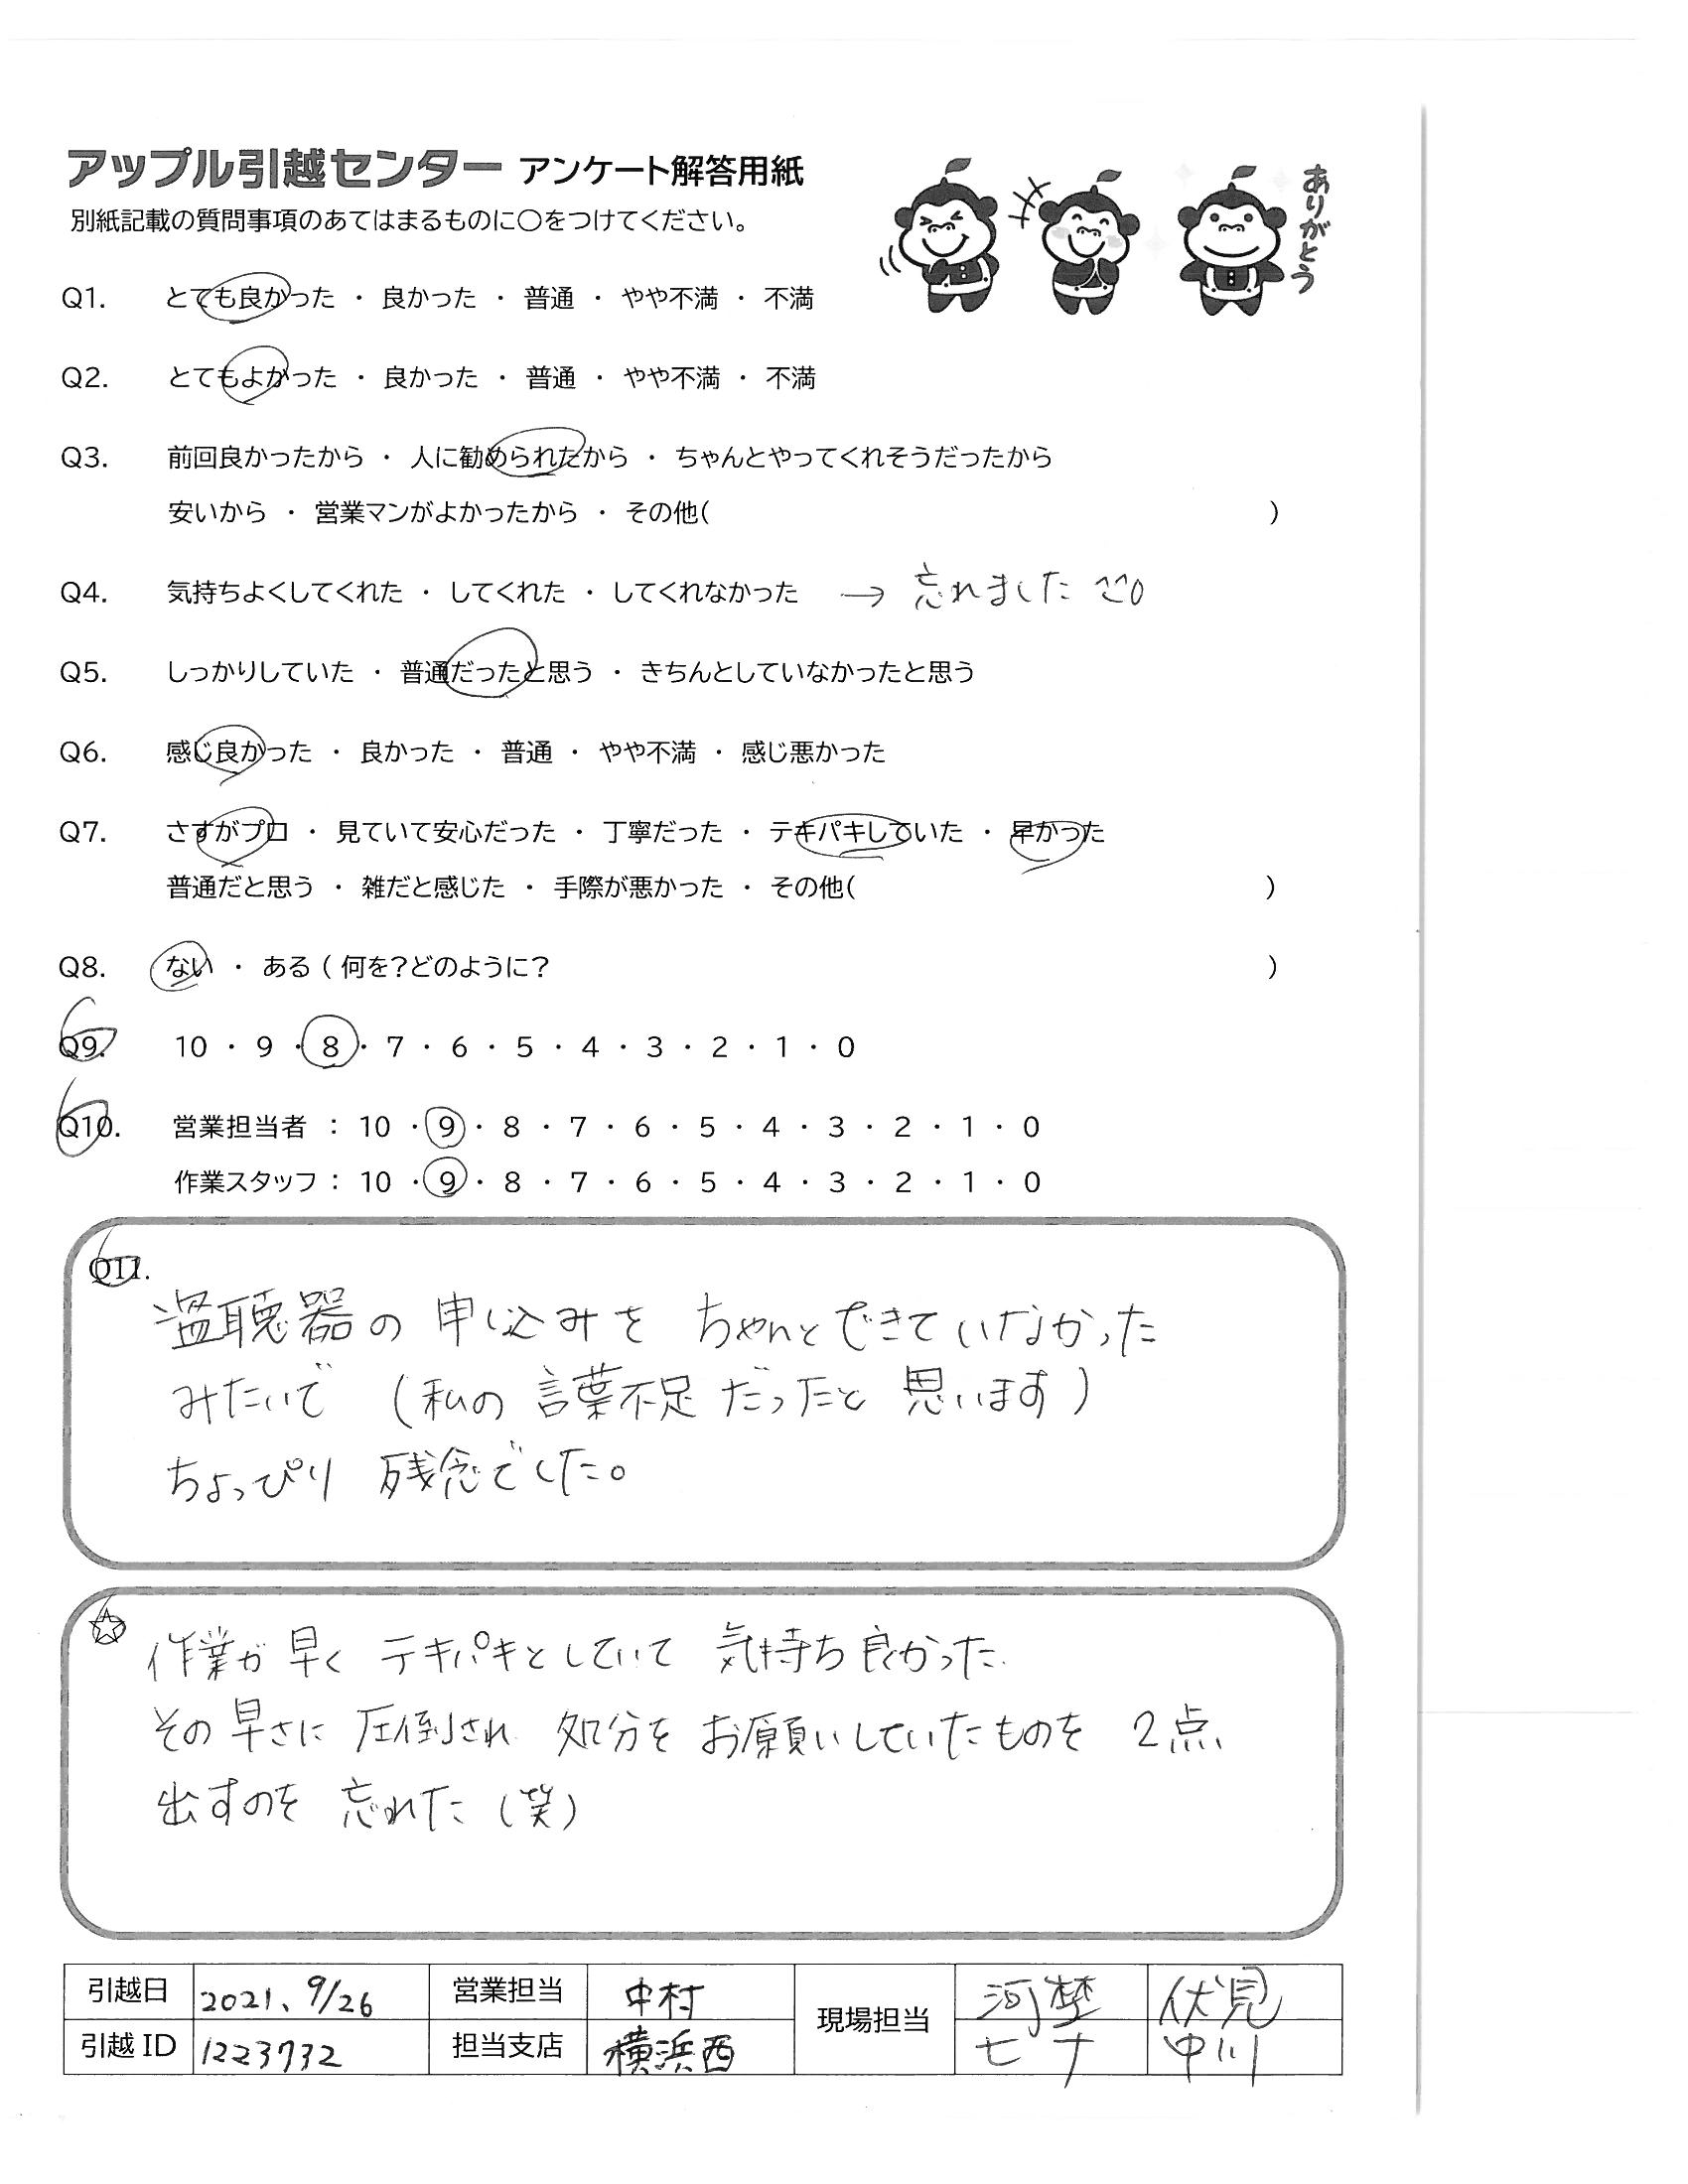 アップル引越センター アンケート解答用紙
別紙記載の質問事項のあてはまるものに○をつけてください。
ありがとう
Q1. とても良かった ・ 良かった ・ 普通 ・ やや不満 ・ 不満
Q2. とてもよかった ・ 良かった ・ 普通 ・ やや不満 ・ 不満
Q3. 前回良かったから ・ 人に勧められたから ・ ちゃんとやってくれそうだったから
安いから ・ 営業マンがよかったから ・ その他( )
Q4. 気持ちよくしてくれた ・ してくれた ・ してくれなかった → 忘れました
Q5. しっかりしていた ・ 普通だったと思う ・ きちんとしていなかったと思う
Q6. 感じ良かった ・ 良かった ・ 普通 ・ やや不満 ・ 感じ悪かった
Q7. さすがプロ ・ 見ていて安心だった ・ 丁寧だった ・ テキパキしていた ・ 早かった
普通だと思う ・ 雑だと感じた ・ 手際が悪かった ・ その他( )
Q8. ない ・ ある ( 何を?どのように? )
Q9. 10 ・ 9 ・ 8 ・ 7 ・ 6 ・ 5 ・ 4 ・ 3 ・ 2 ・ 1 ・ 0
Q10. 営業担当者 : 10 ・ 9 ・ 8 ・ 7 ・ 6 ・ 5 ・ 4 ・ 3 ・ 2 ・ 1 ・ 0
作業スタッフ : 10 ・ 9 ・ 8 ・ 7 ・ 6 ・ 5 ・ 4 ・ 3 ・ 2 ・ 1 ・ 0
Q11.
盗聴器の申し込みをちゃんとできていなかった
みたいで (私の言葉不足だったと思います)
ちょっぴり 残念でした。
☆
作業が早く テキパキとしていて 気持ち良かった.
その早さに 圧倒され 処分をお願いしていたものを 2点、
出すのを 忘れた (笑)
引越日 2021、9/26 営業担当 中村 現場担当 河埜 伏見
引越ID 1223732 担当支店 横浜西 七ナ 中川